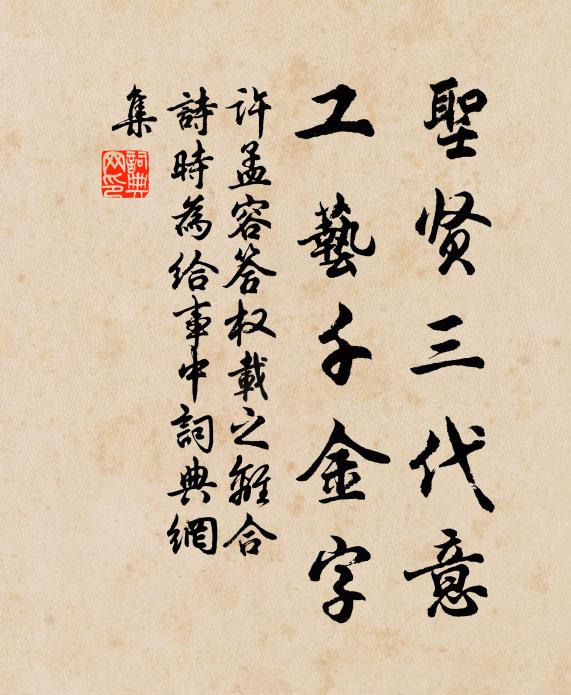 聖贤三代意
工藝千金字
許孟容答权載之離合
詩時為给事中詞典網
集
詞典网印